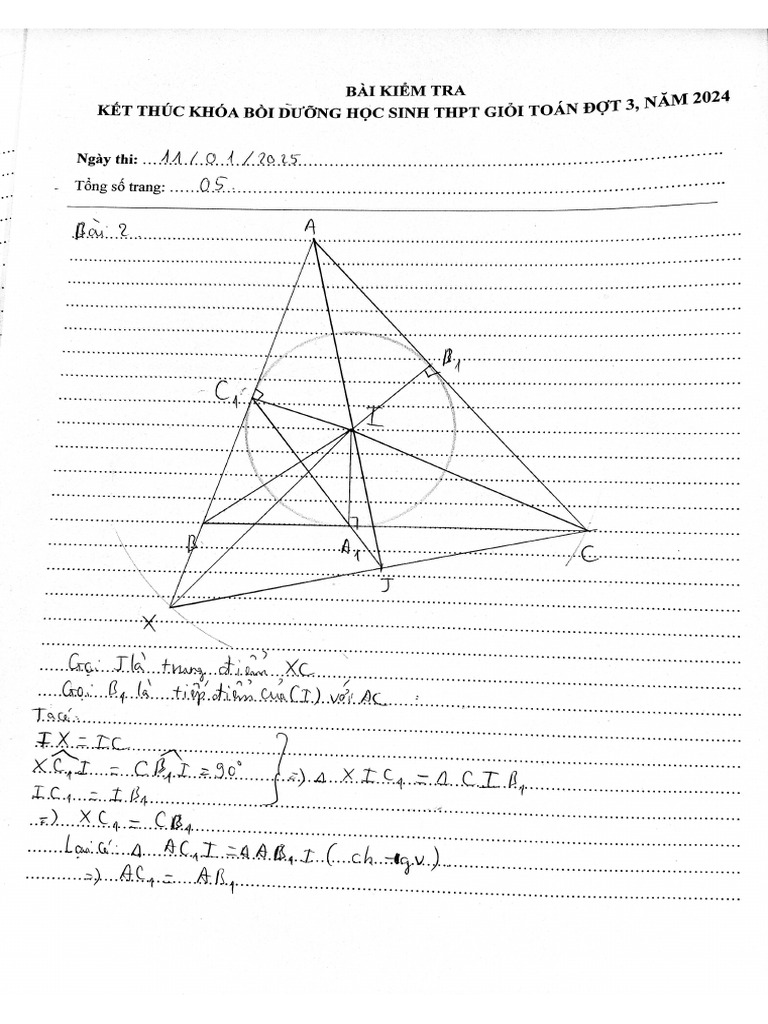 BÀI KIỂM TRA
KẾT THÚC KHÓA BỒI DƯỠNG HỌC SINH THPT GIỎI TOÁN ĐỢT 3, NĂM 2024
Ngày thi: 11/01/2025
Tổng số trang: 05
Bài 2
A
B₁
C₁
I
B
A₁
C
J
X
Gọi J là trung điểm XC
Gọi B₁ là tiếp điểm của (I) với AC
Ta có:
IX = IC
XC₁I = CB₁I = 90° => Δ XIC₁ = Δ CIB₁
IC₁ = IB₁
=> XC₁ = CB₁
Lại có Δ AC₁I = Δ AB₁I (ch - gv)
=> AC₁ = AB₁